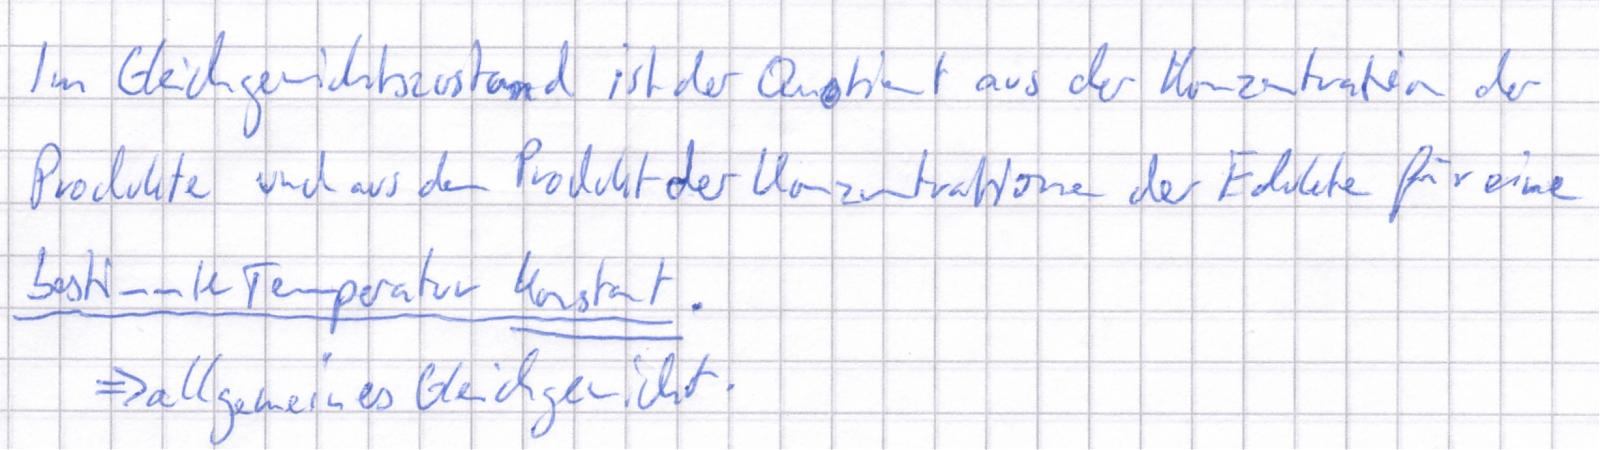 Im Gleichgewichtszustand ist der Quotient aus der Konzentration der
Produkte und aus dem Produkt der Konzentrationen der Edukte für eine
bestimmte Temperatur Konstant.
=> allgemeines Gleichgewicht.